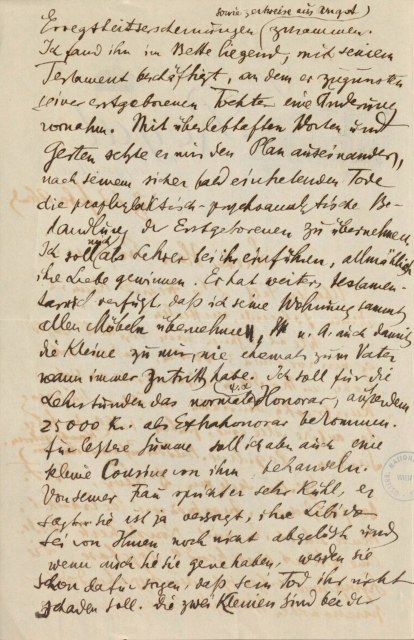 sowie zeitweise aus Angst)
Erregtheitserscheinungen (zusammen.
Ich fand ihn im Bette liegend, mit seinem
Testament beschäftigt, an dem er zugunsten
seiner erstgeborenen Tochter eine Änderung
vornahm. Mit überlebhaften Worten und
Gesten setzte er mir den Plan auseinander,
nach seinem sicher bald eintretenden Tode
die prophylaktisch-psychoanalytische Be-
handlung der Erstgeborenen zu übernehmen.
Ich soll mich als Lehrer bei ihr einführen, allmählich
ihre Liebe gewinnen. Er hat weiters testamen-
tarisch verfügt, daß ich seine Wohnung samt
allen Möbeln übernehme, u. A. auch damit
die Kleine zu mir, wie ehemals zum Vater
wann immer Zutritt habe. Ich soll für die
Lehrstunden das normale Honorar, außerdem
25000 Kr. als Extrahonorar bekommen.
Für letztere Summe soll ich aber auch eine
kleine Cousine von ihm behandeln.
Von seiner Frau spricht er sehr kühl, er
sagt sie ist ja versorgt, ihre Libido
sei von Ihnen noch nicht abgelöst und
wenn auch Sie sie gerne haben, werden Sie
schon dafür sorgen, daß sein Tod ihr nicht
schaden soll. Die zwei Kleinen sind bei der